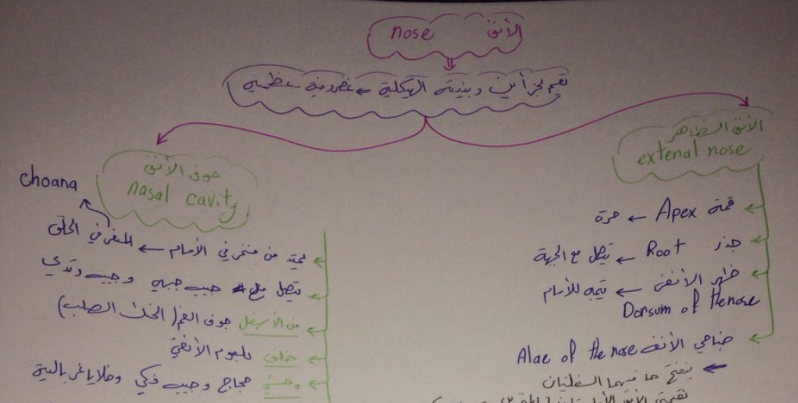 الأنف nose
تقسم لجزأين وبنيته الهيكلية ← غضروفية - عظمية
الأنف الظاهر
extenal nose
قمة Apex ← حرة
جذر Root ← يتصل مع الجبهة
ظهر الأنف ← يتجه للأمام
Dorsum of the nose
جناحي الأنف Alae of the nose
السفليان
جوف الأنف
nasal cavity
choana
يمتد من منخري في الأمام ← المنعرفي الحلق
يتصل مع جيب جبهي وجيب وتدي
من الأسفل جوف الفم (الحنك الصلب)
خلف بلعوم الأنفي
وحشي حجاج وجيب فكي وخلايا غربالية